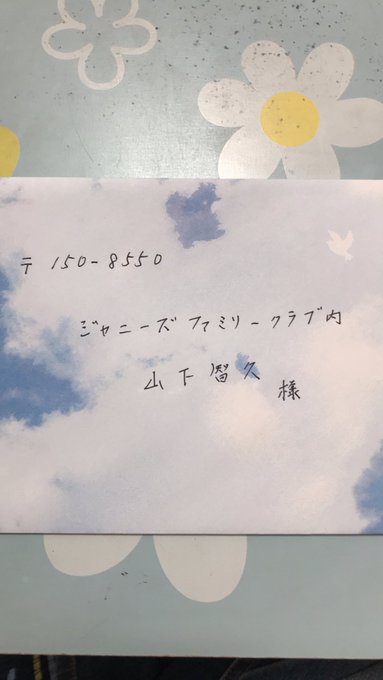 〒150-8550
ジャニーズファミリークラブ内
山下智久
様